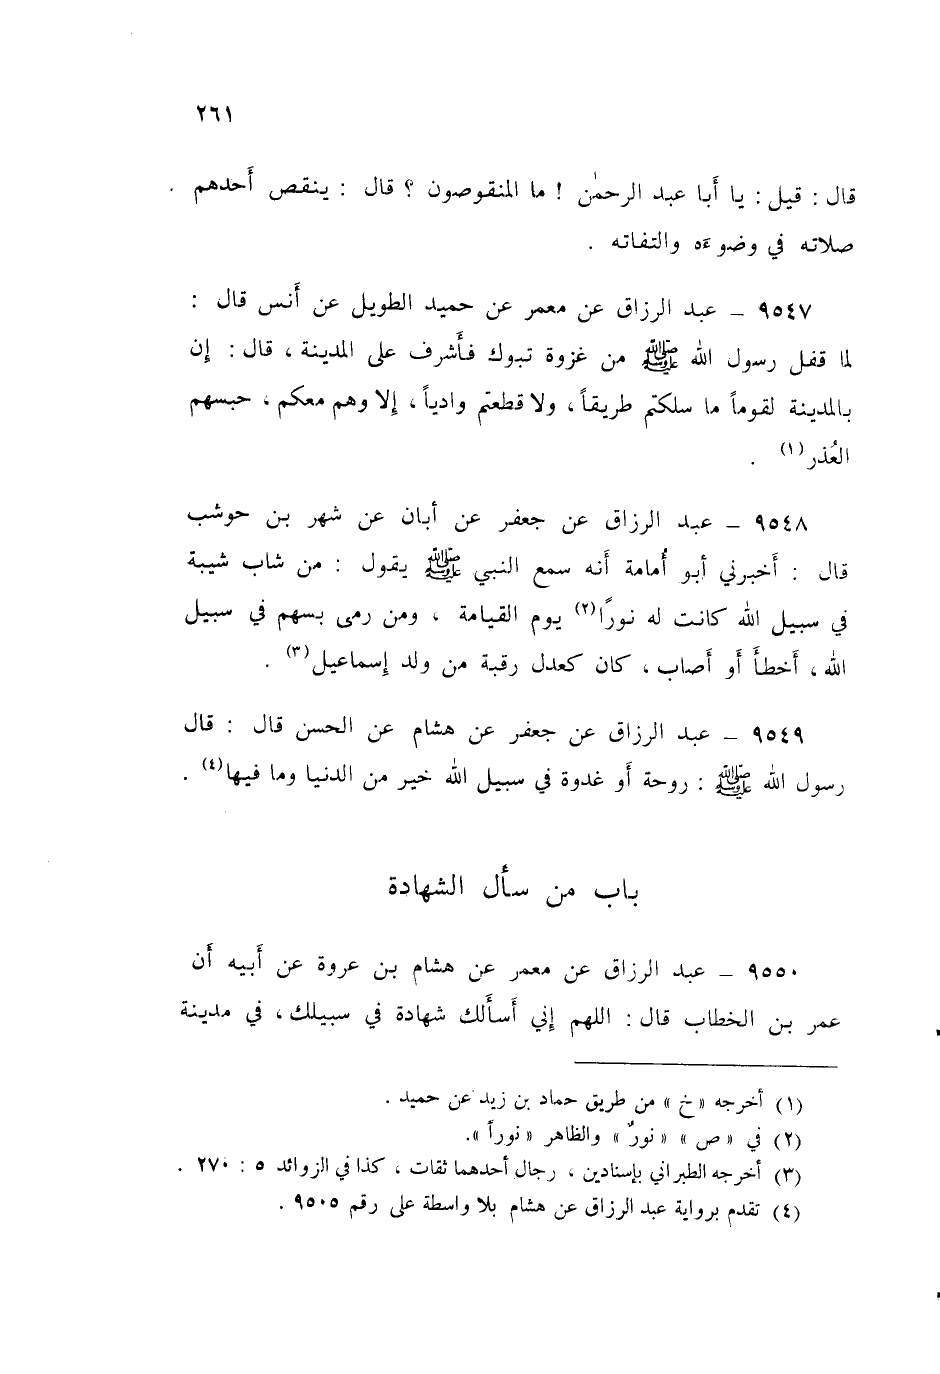 ٢٦١
قال : قيل : يا أبا عبد الرحمٰن ! ما المنقوصون ؟ قال : ينقص أَحدهم .
صلاته في وضوءه والتفاته .
٩٥٤٧ ــ عبد الرزاق عن معمر عن حميد الطويل عن أَنس قال :
لما قفل رسول الله ﷺ من غزوة تبوك فأَشرف على المدينة ، قال : إن
بالمدينة لقوماً ما سلكتم طريقاً ، ولا قطعتم وادياً ، إلا وهم معكم ، حبسهم
العُذر(١) .
٩٥٤٨ ــ عبد الرزاق عن جعفر عن أبان عن شهر بن حوشب
قال : أَخبرني أبو أُمامة أنه سمع النبي ﷺ يقول : من شاب شيبة
في سبيل الله كانت له نورًا(٢) يوم القيامة ، ومن رمى بسهم في سبيل
الله ، أَخطأَ أَو أَصاب ، كان كعدل رقبة من ولد إسماعيل(٣) .
٩٥٤٩ ــ عبد الرزاق عن جعفر عن هشام عن الحسن قال : قال
رسول الله ﷺ : روحة أَو غدوة في سبيل الله خير من الدنيا وما فيها(٤) .
باب من سأَل الشهادة
٩٥٥٠ ــ عبد الرزاق عن معمر عن هشام بن عروة عن أَبيه أَن
عمر بن الخطاب قال : اللهم إني أَسأَلك شهادة في سبيلك ، في مدينة
(١) أخرجه «خ» من طريق حماد بن زيد عن حميد .
(٢) في «ص» «نورٌ» والظاهر «نوراً».
(٣) أخرجه الطبراني بإسنادين ، رجال أحدهما ثقات ، كذا في الزوائد ٥ : ٢٧٠ .
(٤) تقدم برواية عبد الرزاق عن هشام بلا واسطة على رقم ٩٥٠٥ .